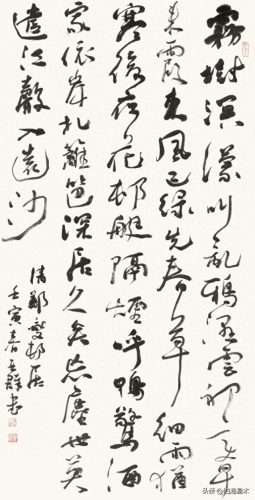 霧樹溟濛叫亂鴉濕雲初變早
来霞東風已綠先春草細雨猶
寒後夜花邨艇隔煙呼鴨鶩酒
家依岸扎籬笆深居久矣忘塵世莫
遣江聲入遠沙
清鄭燮邨居
壬寅春
头条